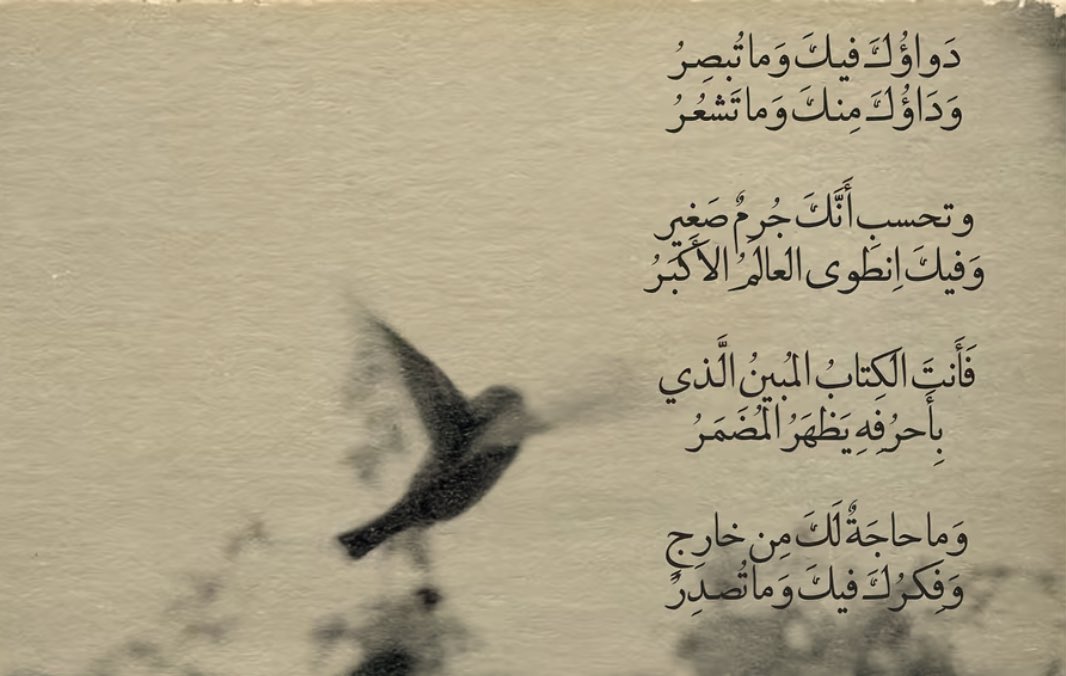 دَواؤُكَ فيكَ وَما تُبصِرُ
وَدَاؤُكَ مِنكَ وَما تَشعُرُ
وتحسبِ أَنَّكَ جُرمٌ صَغير
وَفيكَ اِنطَوى العالَمُ الأَكبَرُ
فَأَنتَ الكِتابُ المُبينُ الَّذي
بِأَحرُفِهِ يَظهَرُ المُضمَرُ
وَما حاجَةٌ لَكَ مِن خارِجٍ
وَفِكرُكَ فيكَ وَما تُصدِرُ